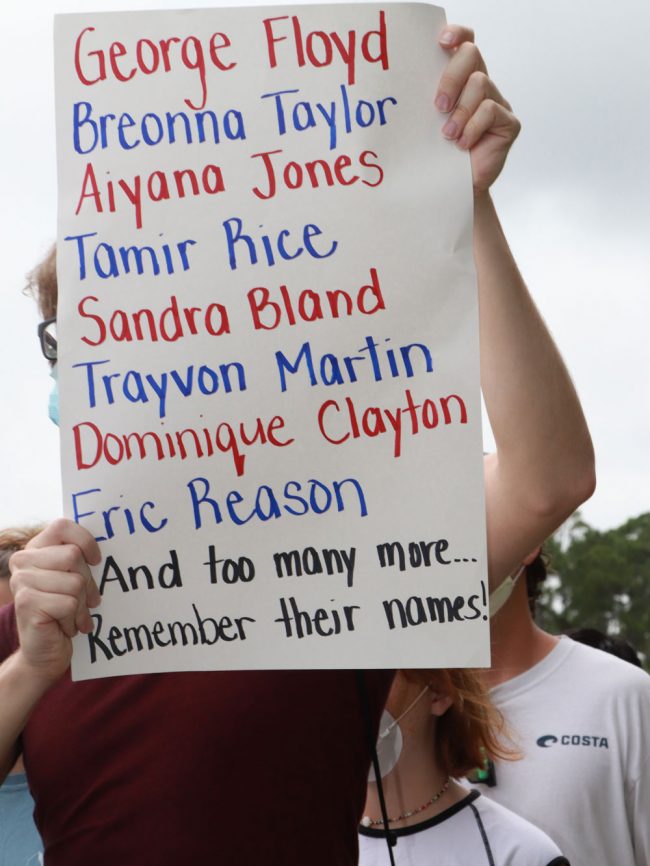 George Floyd
Breonna Taylor
Aiyana Jones
Tamir Rice
Sandra Bland
Trayvon Martin
Dominique Clayton
Eric Reason
And too many more...
Remember their names!
COSTA